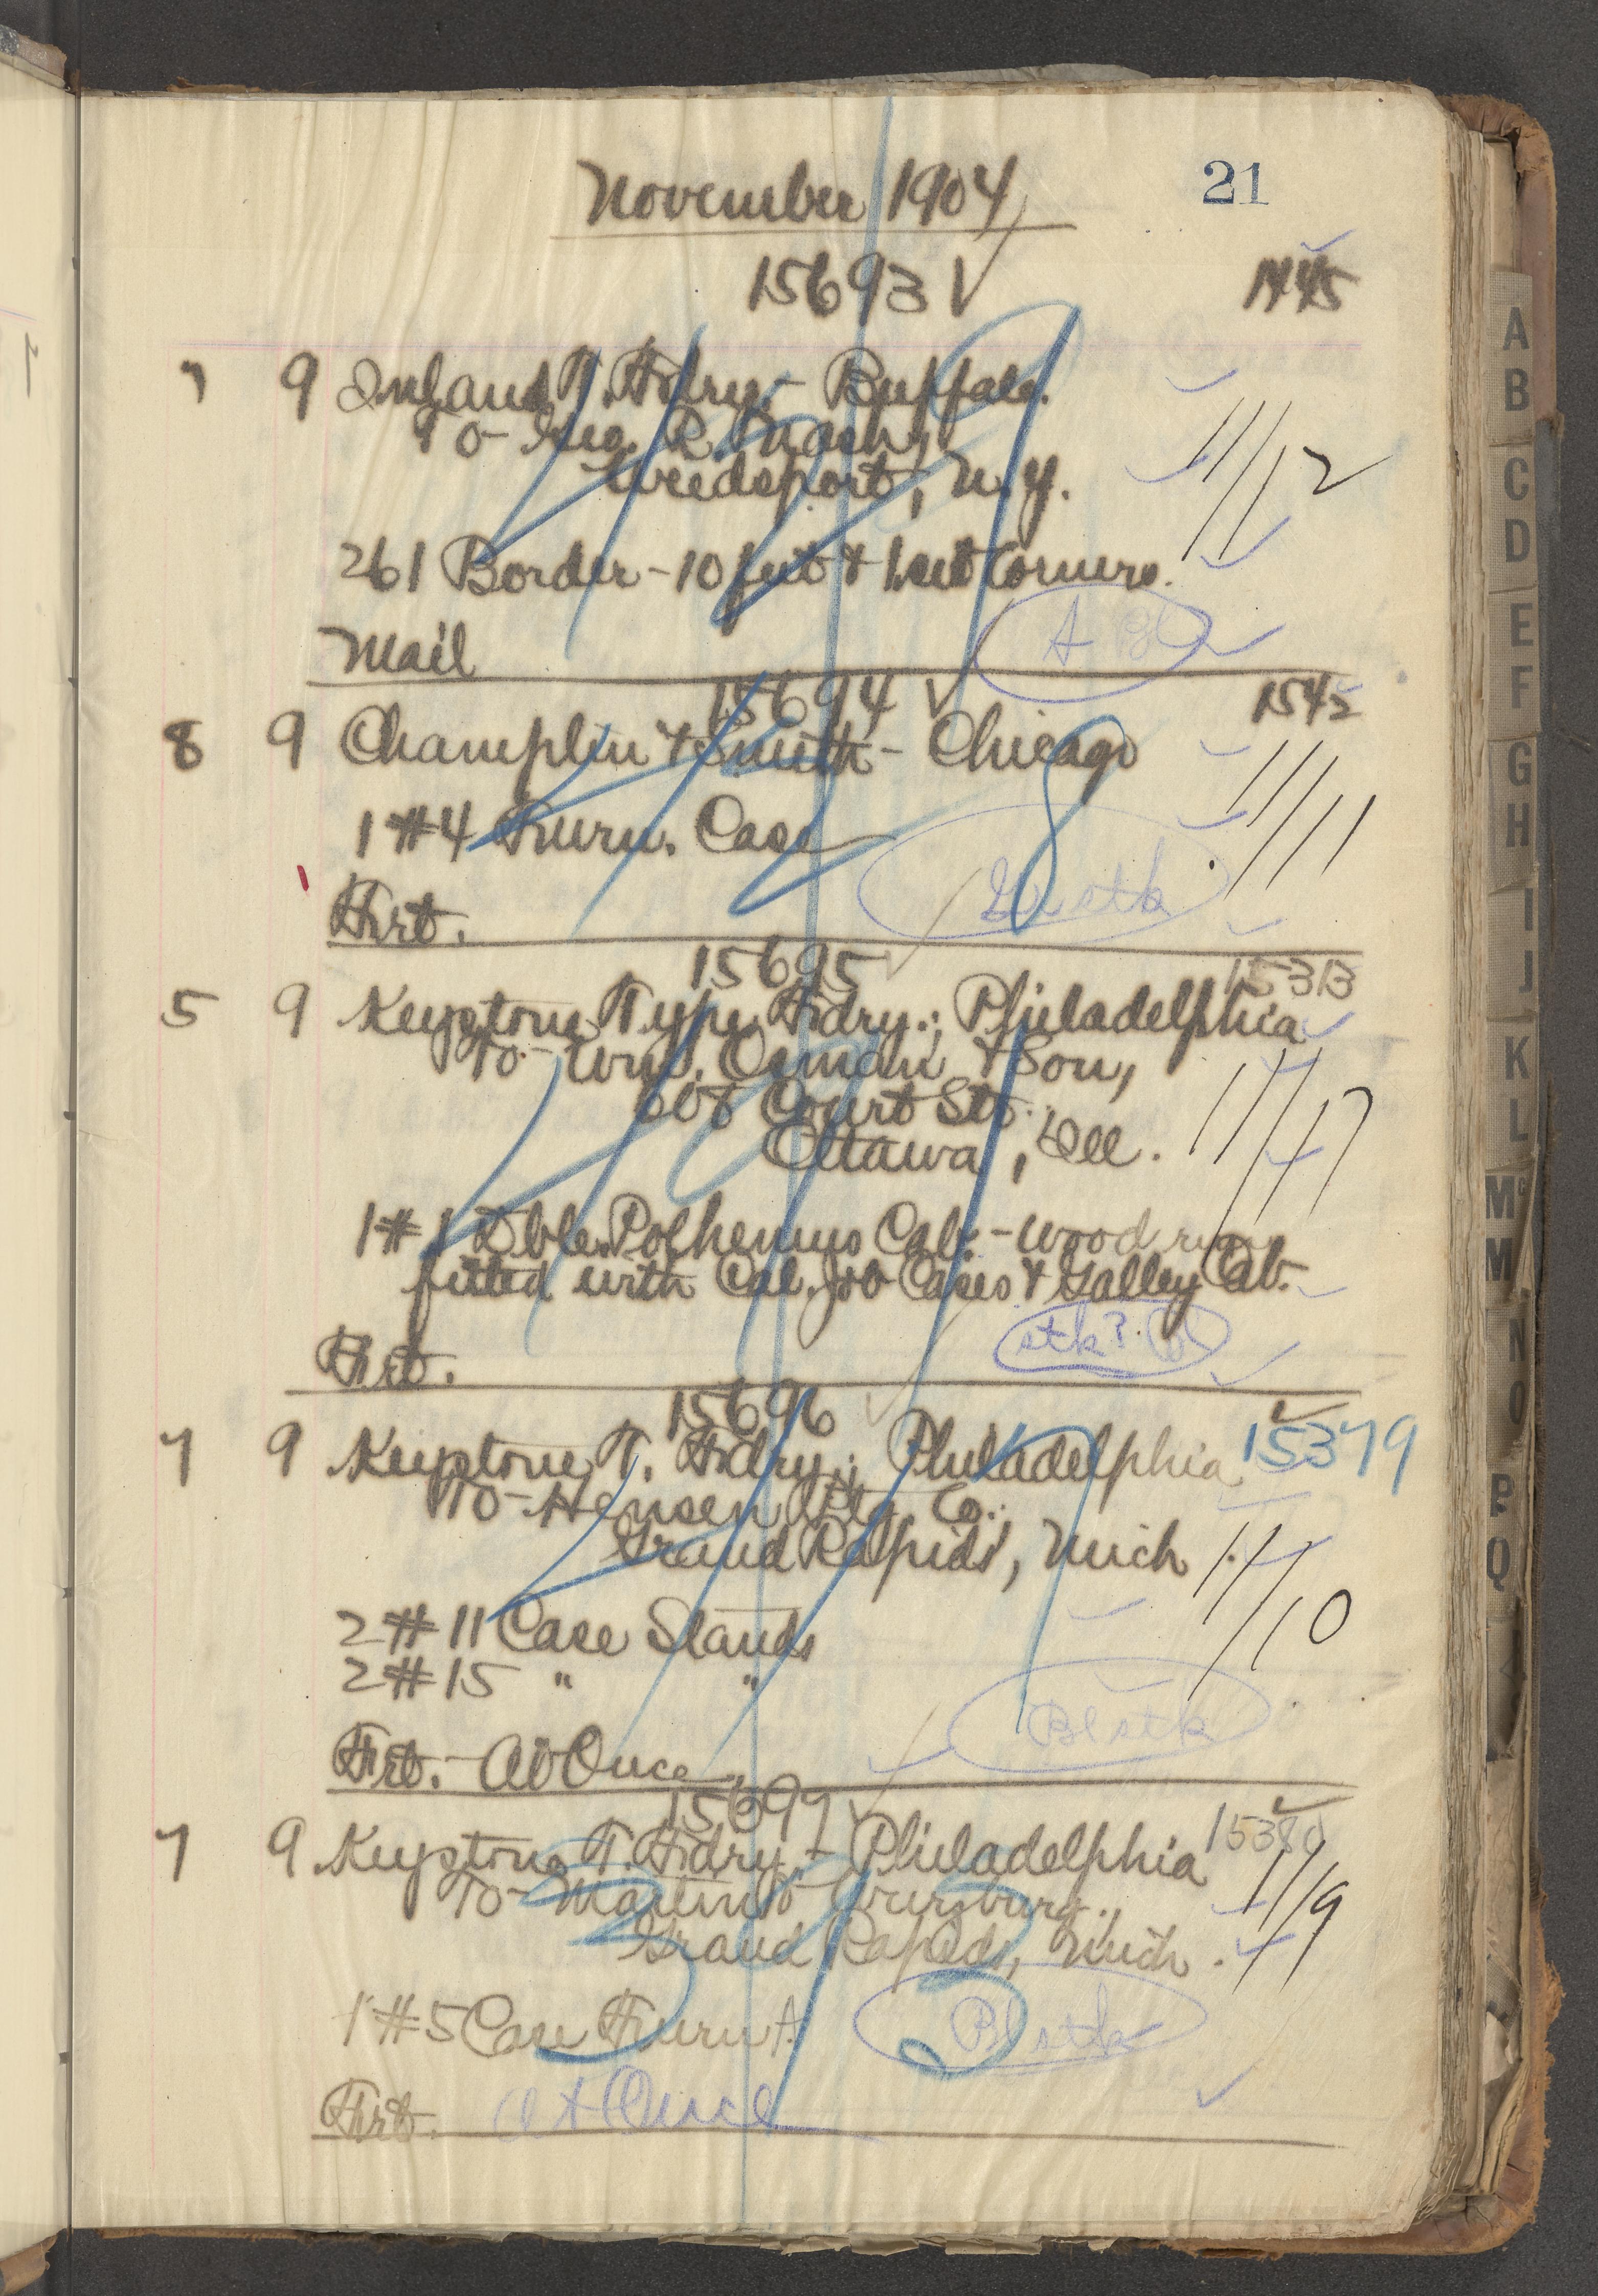 November 1904 21
15693 √ 1445
7 9 Inland T. Fdry. - Buffalo.
To- Geo. R. Nash,
Weedsport, N.Y.
11/12
261 Border - 10 feet & 1 set Corners.
Mail
15694 √ 1545
8 9 Champlin & Smith - Chicago
1 #4 Furn. Case
11/11
stk
Frt.
15695 √ 15313
5 9 Keystone Type Fdry.; Philadelphia
To- Wm. Osman & Son,
608 Court St.
Ottawa, Ill.
11/17
1 #1 Dble. Polhemus Cab. - wood
fitted with Cal. Job Cases & Galley Cab.
stk?
Frt.
15696 √ 15379
7 9 Keystone T. Fdry.; Philadelphia
To- Hensen Ptg. Co.
Grand Rapids, Mich.
11/10
2 #11 Case Stands
2 #15 " "
Bl stk
Frt. - At Once
15697 √ 15380
7 9 Keystone T. Fdry. - Philadelphia
To- Martin &
Grand Rapids, Mich.
11/9
1 #5 Case Furn
Bl stk
Frt. At Once
A
B
C
D
E
F
G
H
I
J
K
L
Mc
M
N
O
P
Q